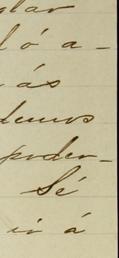 glar
ló a-
ás
demos
poder-
Sé
ir á